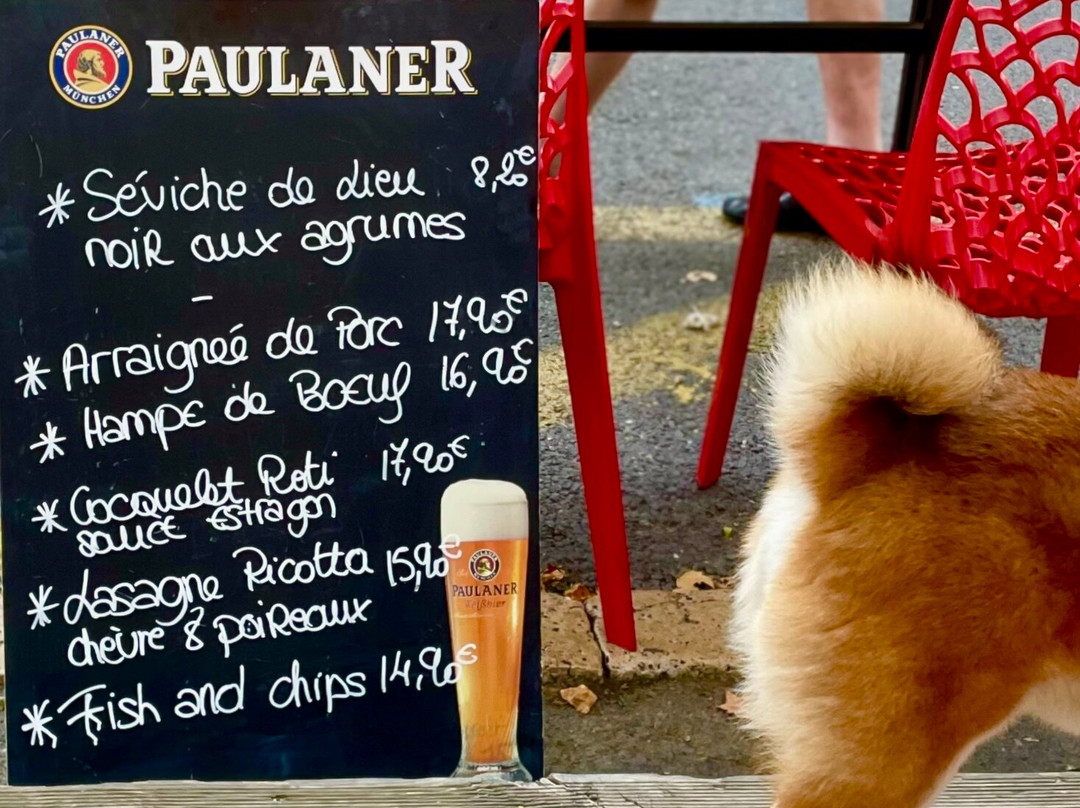 PAULANER
MÜNCHEN
PAULANER
* Séviche de Lieu 8,20€
noir aux agrumes
-
* Arraigneé de Porc 17,90€
* Hampe de Boeuf 16,90€
* Cocquelet Roti 17,90€
sauce Estragon
* Lasagne Ricotta 15,90€
chèvre & poireaux
* Fish and chips 14,90€
PAULANER
Weißbier